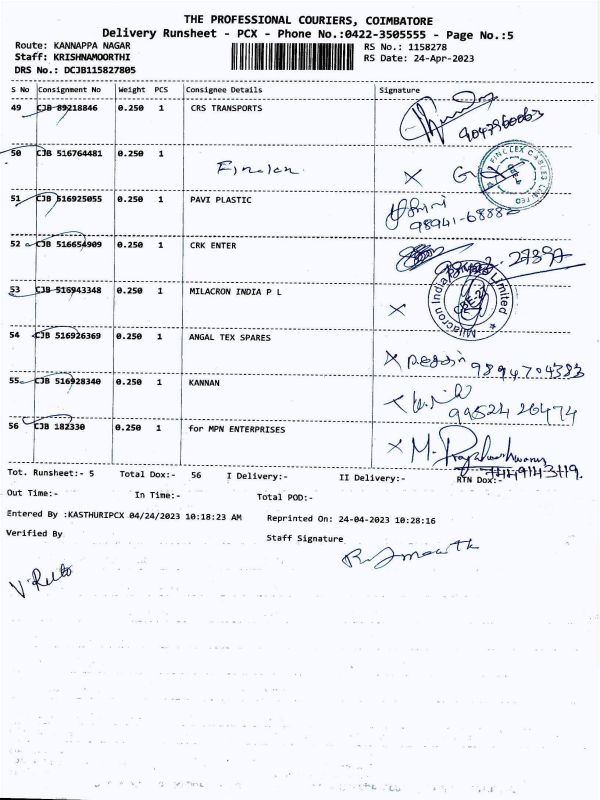 THE PROFESSIONAL COURIERS, COIMBATORE
Delivery Runsheet - PCX - Phone No.:0422-3505555 - Page No.:5
Route: KANNAPPA NAGAR RS No.: 1158278
Staff: KRISHNAMOORTHI RS Date: 24-Apr-2023
DRS No.: DCJB115827805
S No Consignment No Weight PCS Consignee Details Signature
49 CJB 89218846 0.250 1 CRS TRANSPORTS
9047960063
50 CJB 516764481 0.250 1
FINOLEX CABLES LIMITED
51 CJB 516925055 0.250 1 PAVI PLASTIC
98941-68882
52 CJB 516654909 0.250 1 CRK ENTER
27397
53 CJB 516943348 0.250 1 MILACRON INDIA P L
Milacron India Private Limited
CBE-27
54 CJB 516926369 0.250 1 ANGAL TEX SPARES
9894704383
55 CJB 516928340 0.250 1 KANNAN
99524 26474
56 CJB 182330 0.250 1 for MPN ENTERPRISES
Tot. Runsheet:- 5 Total Dox:- 56 I Delivery:- II Delivery:- RTN Dox:-
Out Time:- In Time:- Total POD:-
Entered By :KASTHURIPCX 04/24/2023 10:18:23 AM Reprinted On: 24-04-2023 10:28:16
Verified By Staff Signature